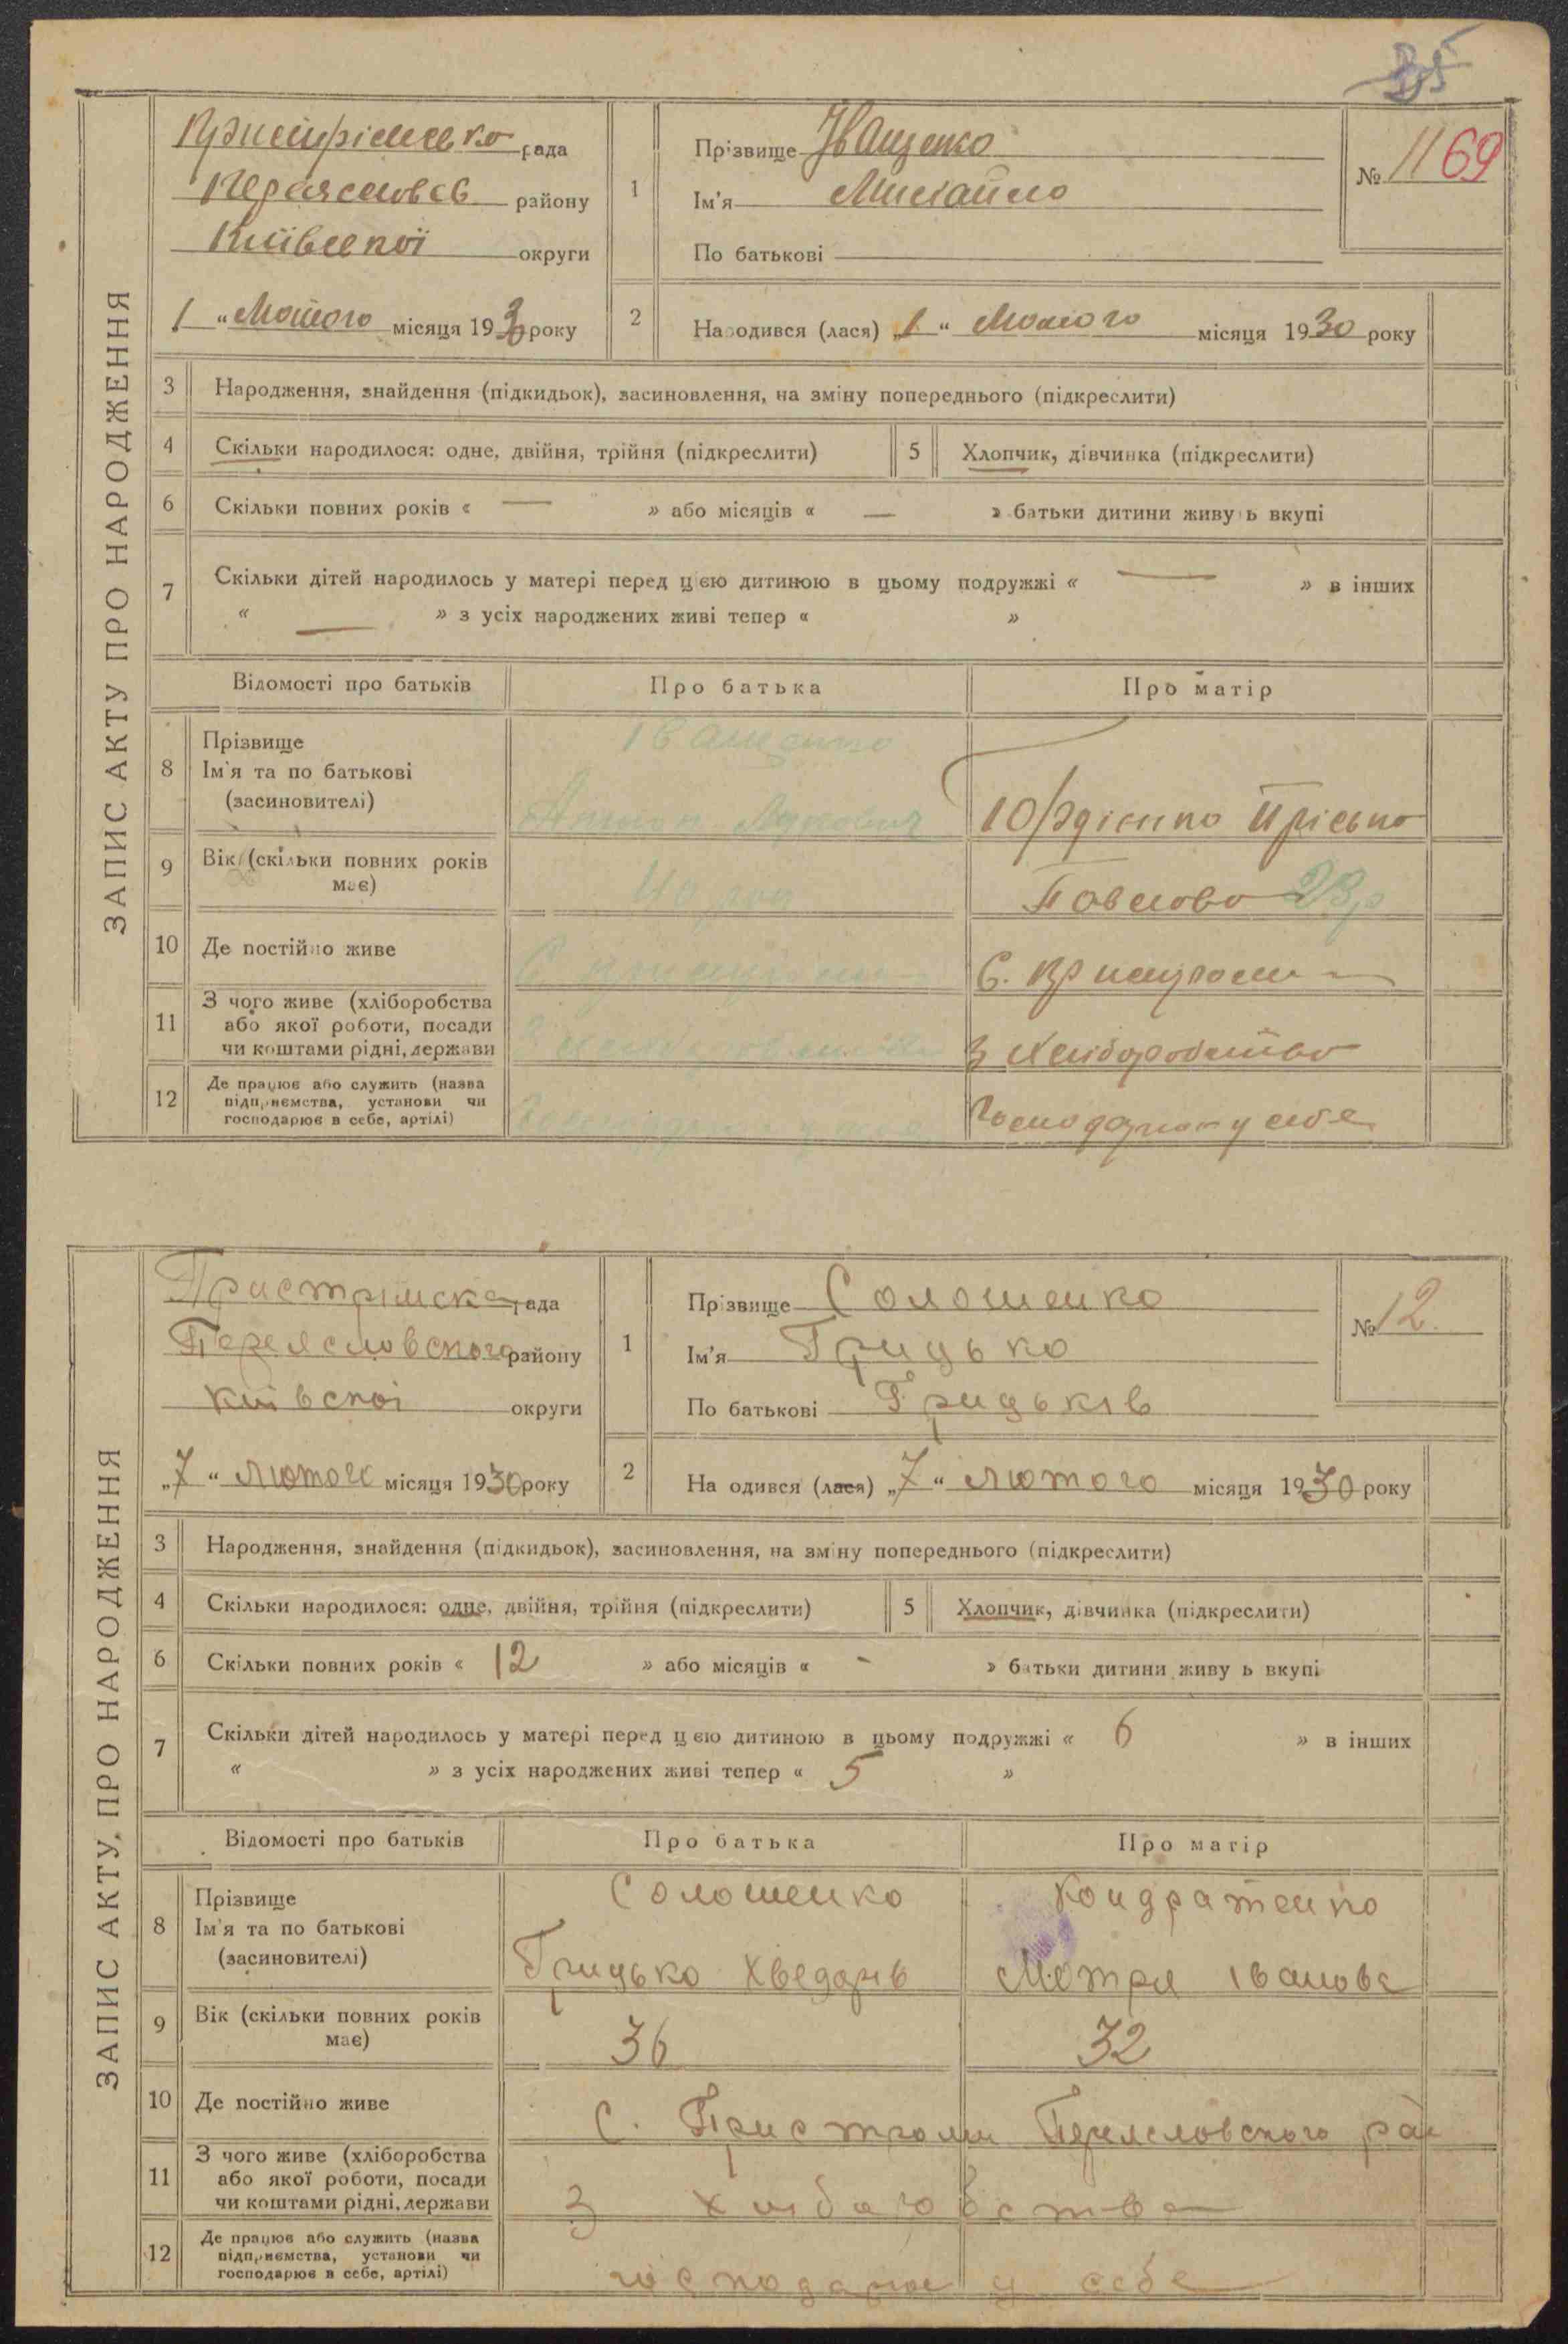 35
ЗАПИС АКТУ ПРО НАРОДЖЕННЯ
рада
району
Київської округи
1 " Лютого місяця 1930 року
1
Прізвище Іващенко
Ім'я Михайло
По батькові
№ 11 69
2
Народився (лася) „1 " Лютого місяця 1930 року
3 Народження, знайдення (підкидьок), засиновлення, на зміну попереднього (підкреслити)
4 Скільки народилося: одне, двійня, трійня (підкреслити) 5 Хлопчик, дівчинка (підкреслити)
6 Скільки повних років « — » або місяців « — » батьки дитини живуть вкупі
7 Скільки дітей народилось у матері перед цією дитиною в цьому подружжі « — » в інших
« — » з усіх народжених живі тепер « »
Відомості про батьків Про батька Про матір
8 Прізвище
Ім'я та по батькові
(засиновителі)
Іващенко
9 Вік (скільки повних років
має)
40 23
10 Де постійно живе
С. С.
11 З чого живе (хліборобства
або якої роботи, посади
чи коштами рідні, держави
З З хліборобства
12 Де працює або служить (назва
підприємства, установи чи
господарює в себе, артілі)
у себе
ЗАПИС АКТУ ПРО НАРОДЖЕННЯ
Пристромска рада
Переясловського району
Київскої округи
„7 " лютого місяця 1930 року
1
Прізвище Солошенко
Ім'я Грицько
По батькові Грицьків
№ 12.
2
Народився (лася) „7 " лютого місяця 1930 року
3 Народження, знайдення (підкидьок), засиновлення, на зміну попереднього (підкреслити)
4 Скільки народилося: одне, двійня, трійня (підкреслити) 5 Хлопчик, дівчинка (підкреслити)
6 Скільки повних років « 12 » або місяців « - » батьки дитини живуть вкупі
7 Скільки дітей народилось у матері перед цією дитиною в цьому подружжі « 6 » в інших
« » з усіх народжених живі тепер « 5 »
Відомості про батьків Про батька Про матір
8 Прізвище
Ім'я та по батькові
(засиновителі)
Солошенко Кондратенко
Грицько Хведорів Мотря Іванова
9 Вік (скільки повних років
має)
36 32
10 Де постійно живе
С. Пристроми Переясловского рай
11 З чого живе (хліборобства
або якої роботи, посади
чи коштами рідні, держави
З
12 Де працює або служить (назва
підприємства, установи чи
господарює в себе, артілі)
господарює у себе